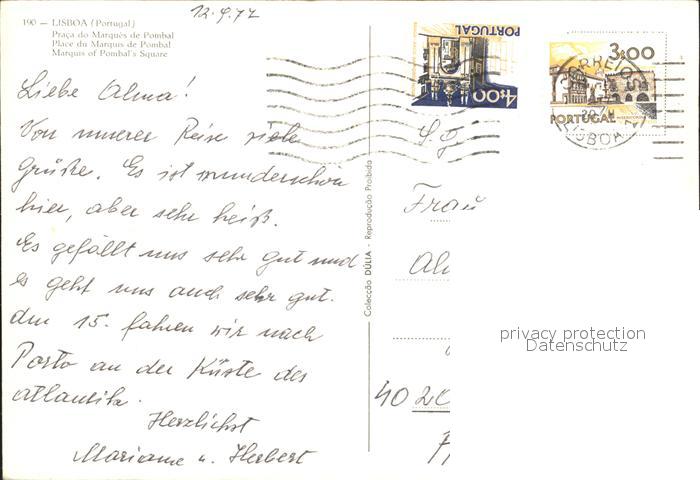 12.9.77
190 — LISBOA (Portugal)
Praça do Marquês de Pombal
Place du Marquis de Pombal
Marquis of Pombal's Square
PORTUGAL
4$00
3$00
PORTUGAL
CORREIOS
LISBOA
Liebe Alma!
Von unserer Reise viele
Grüße. Es ist wunderschön
hier, aber sehr heiß.
Es gefällt uns sehr gut und
es geht uns auch sehr gut.
den 15. fahren wir nach
Porto an der Küste des
Atlantik.
Herzlichst
Mariane u. Herbert
Colecção DÚLIA - Reprodução Proibida
Frau
Al
4020
privacy protection
Datenschutz